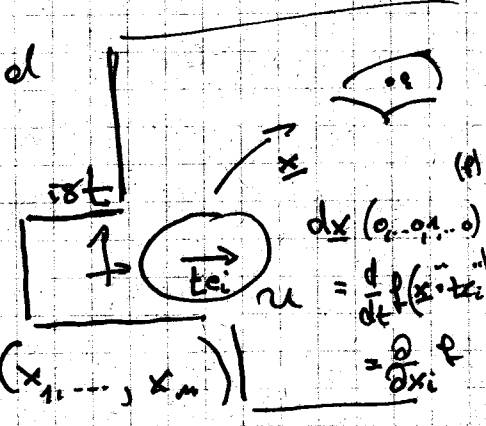 d
te_i
x
U
(p)
dx (0,...0,1,...0)
= d/dt f(x + te_i)
= ∂/∂x_i f
(x_1, ..., x_n)